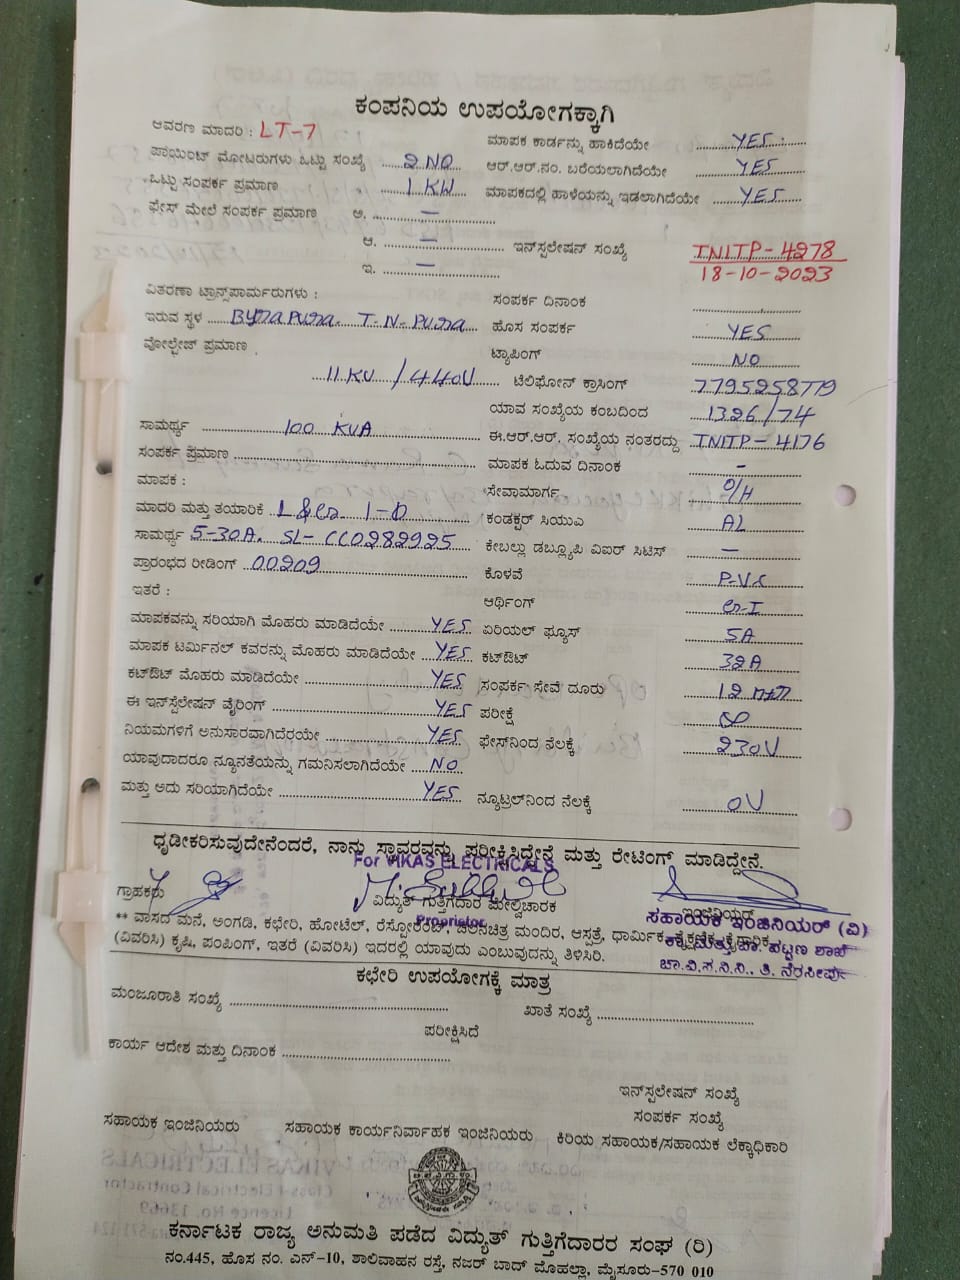 ಕಂಪನಿಯ ಉಪಯೋಗಕ್ಕಾಗಿ
ಆವರಣ ಮಾದರಿ : LT-7
ಮಾಪಕ ಕಾರ್ಡನ್ನು ಹಾಕಿದೆಯೇ YES
ಪಾಯಿಂಟ್ ಮೋಟರುಗಳು ಒಟ್ಟು ಸಂಖ್ಯೆ 2 NO
ಆರ್.ಆರ್.ನಂ. ಬರೆಯಲಾಗಿದೆಯೇ YES
ಒಟ್ಟು ಸಂಪರ್ಕ ಪ್ರಮಾಣ 1 KW
ಮಾಪಕದಲ್ಲಿ ಹಾಳೆಯನ್ನು ಇಡಲಾಗಿದೆಯೇ YES
ಫೇಸ್ ಮೇಲೆ ಸಂಪರ್ಕ ಪ್ರಮಾಣ ಅ. —
ಆ. — ಇನ್‌ಸ್ಟಲೇಷನ್ ಸಂಖ್ಯೆ TNITP-4278
ಇ. — 18-10-2023
ವಿತರಣಾ ಟ್ರಾನ್ಸ್‌ಪಾರ್ಮರುಗಳು :
ಸಂಪರ್ಕ ದಿನಾಂಕ
ಇರುವ ಸ್ಥಳ T-N-PURA
ಹೊಸ ಸಂಪರ್ಕ YES
ವೋಲ್ಟೇಜ್ ಪ್ರಮಾಣ
ಟ್ಯಾಪಿಂಗ್ NO
11 KV / 440V
ಟೆಲಿಫೋನ್ ಕ್ರಾಸಿಂಗ್
ಯಾವ ಸಂಖ್ಯೆಯ ಕಂಬದಿಂದ 1326/74
ಸಾಮರ್ಥ್ಯ 100 KVA
ಈ.ಆರ್.ಆರ್. ಸಂಖ್ಯೆಯ ನಂತರದ್ದು TNITP-4176
ಸಂಪರ್ಕ ಪ್ರಮಾಣ
ಮಾಪಕ ಓದುವ ದಿನಾಂಕ -
ಮಾಪಕ :
ಸೇವಾಮಾರ್ಗ O/H
ಮಾದರಿ ಮತ್ತು ತಯಾರಿಕೆ
ಕಂಡಕ್ಟರ್ ಸಿಯುಎ AL
ಸಾಮರ್ಥ್ಯ 5-30A. SL- CC0282925
ಕೇಬಲ್ಲು ಡಬ್ಲ್ಯೂಪಿ ವಿಐರ್ ಸಿಟಿಸ್ —
ಪ್ರಾರಂಭದ ರೀಡಿಂಗ್ 00209
ಕೊಳವೆ P-V-C
ಇತರೆ :
ಆರ್ಥಿಂಗ್
ಮಾಪಕವನ್ನು ಸರಿಯಾಗಿ ಮೊಹರು ಮಾಡಿದೆಯೇ YES
ಏರಿಯಲ್ ಫ್ಯೂಸ್ 5A
ಮಾಪಕ ಟರ್ಮಿನಲ್ ಕವರನ್ನು ಮೊಹರು ಮಾಡಿದೆಯೇ YES
ಕಟ್‌ಔಟ್ 32A
ಕಟ್‌ಔಟ್ ಮೊಹರು ಮಾಡಿದೆಯೇ YES
ಸಂಪರ್ಕ ಸೇವೆ ದೂರು
ಈ ಇನ್‌ಸ್ಟೆಲೇಷನ್ ವೈರಿಂಗ್ YES
ಪರೀಕ್ಷೆ
ನಿಯಮಗಳಿಗೆ ಅನುಸಾರವಾಗಿದೆರಯೇ YES
ಫೇಸ್‌ನಿಂದ ನೆಲಕ್ಕೆ 230V
ಯಾವುದಾದರೂ ನ್ಯೂನತೆಯನ್ನು ಗಮನಿಸಲಾಗಿದೆಯೇ NO
ಮತ್ತು ಅದು ಸರಿಯಾಗಿದೆಯೇ YES
ನ್ಯೂಟ್ರಲ್‌ನಿಂದ ನೆಲಕ್ಕೆ 0V
ಧೃಡೀಕರಿಸುವುದೇನೆಂದರೆ, ನಾನು ಸ್ಥಾವರವನ್ನು ಪರೀಕ್ಷಿಸಿದ್ದೇನೆ ಮತ್ತು ರೇಟಿಂಗ್ ಮಾಡಿದ್ದೇನೆ.
For VIKAS ELECTRICALS
ಗ್ರಾಹಕರು
ವಿದ್ಯುತ್ ಗುತ್ತಿಗೆದಾರ ಮೇಲ್ವಿಚಾರಕ
ಇಂಜಿನಿಯರ್
Proprietor
ಸಹಾಯಕ ಇಂಜಿನಿಯರ್ (ವಿ)
** ವಾಸದ ಮನೆ, ಅಂಗಡಿ, ಕಛೇರಿ, ಹೋಟೆಲ್, ರೆಸ್ಟೋರೆಂಟ್, ಚಲನಚಿತ್ರ ಮಂದಿರ, ಆಸ್ಪತ್ರೆ, ಧಾರ್ಮಿಕ, ಶೈಕ್ಷಣಿಕ, ಕೈಗಾರಿಕ
(ವಿವರಿಸಿ) ಕೃಷಿ, ಪಂಪಿಂಗ್, ಇತರೆ (ವಿವರಿಸಿ) ಇದರಲ್ಲಿ ಯಾವುದು ಎಂಬುವುದನ್ನು ತಿಳಿಸಿರಿ.
ಪಟ್ಟಣ ಶಾಖೆ
ಚಾ.ವಿ.ಸ.ನಿ.ನಿ., ತಿ. ನರಸೀಪುರ
ಕಛೇರಿ ಉಪಯೋಗಕ್ಕೆ ಮಾತ್ರ
ಮಂಜೂರಾತಿ ಸಂಖ್ಯೆ
ಖಾತೆ ಸಂಖ್ಯೆ
ಪರೀಕ್ಷಿಸಿದೆ
ಕಾರ್ಯ ಆದೇಶ ಮತ್ತು ದಿನಾಂಕ
ಇನ್‌ಸ್ಟಲೇಷನ್ ಸಂಖ್ಯೆ
ಸಂಪರ್ಕ ಸಂಖ್ಯೆ
ಸಹಾಯಕ ಇಂಜಿನಿಯರು ಸಹಾಯಕ ಕಾರ್ಯನಿರ್ವಾಹಕ ಇಂಜಿನಿಯರು ಕಿರಿಯ ಸಹಾಯಕ/ಸಹಾಯಕ ಲೆಕ್ಕಾಧಿಕಾರಿ
ಕರ್ನಾಟಕ ರಾಜ್ಯ ಅನುಮತಿ ಪಡೆದ ವಿದ್ಯುತ್ ಗುತ್ತಿಗೆದಾರರ ಸಂಘ (ರಿ)
ನಂ.445, ಹೊಸ ನಂ. ಎನ್-10, ಶಾಲಿವಾಹನ ರಸ್ತೆ, ನಜರ್ ಬಾದ್ ಮೊಹಲ್ಲಾ, ಮೈಸೂರು-570 010